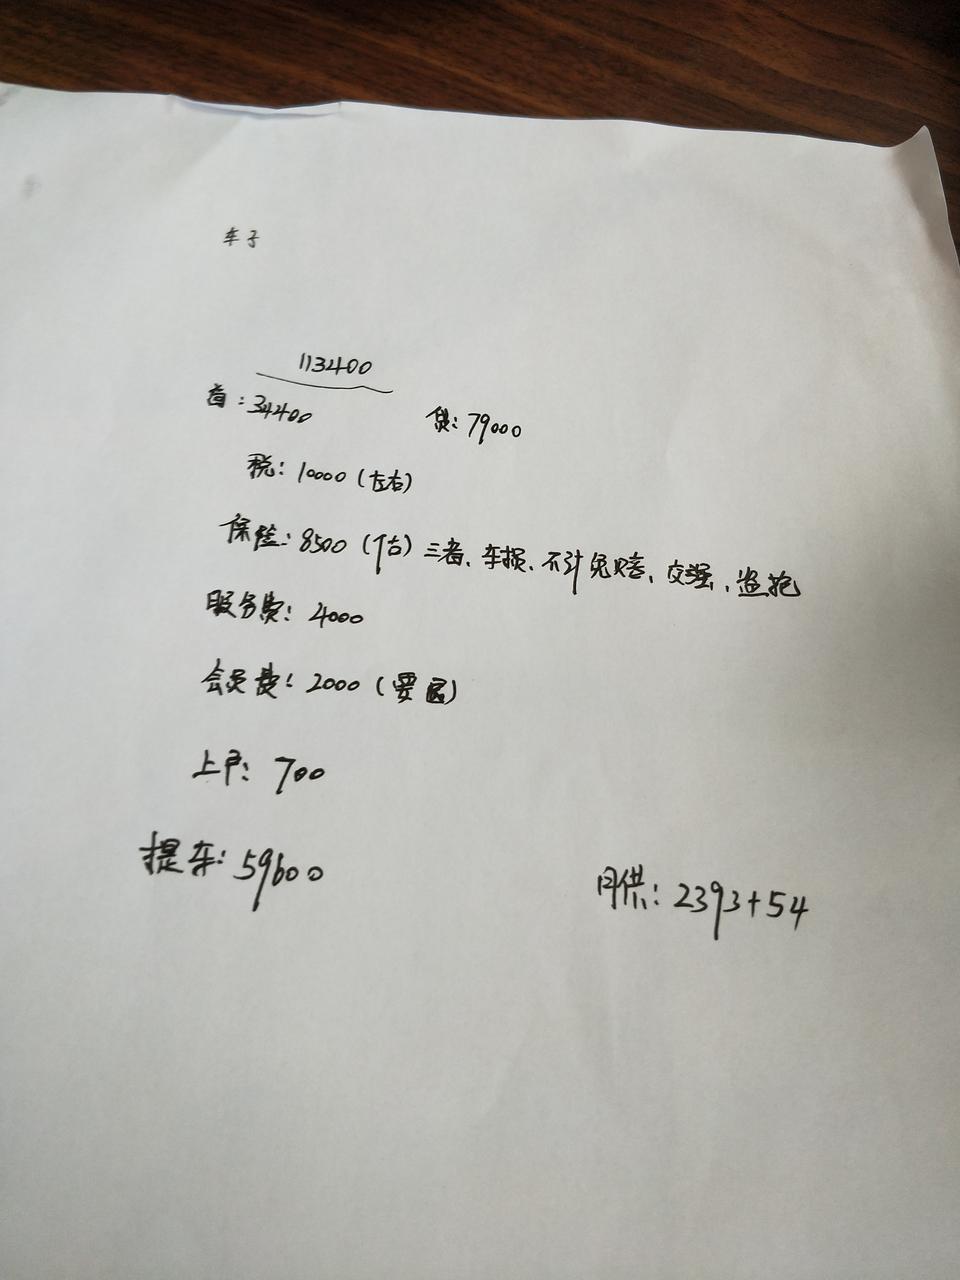 车子
113400
首:34400 贷:79000
税:10000(左右)
保险:8500(估)三者、车损、不计免赔、交强、盗抢
服务费:4000
会员费:2000(要退)
上户:700
提车:59600 月供:2393+54